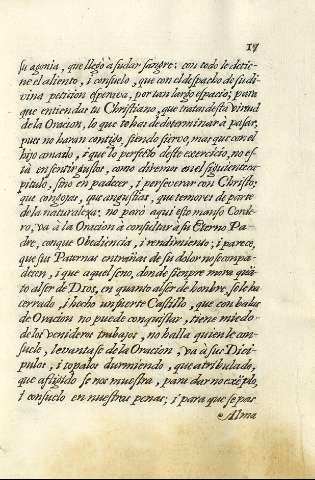 17
su agonia, que llegò à sudar sangre; con todo le detie-
ne el aliento, i consuelo, que con el despacho de su di-
vina peticion esperava, por tan largo espacio; para
que entiendas tu Christiano, que tratas desta virtud
de la Oracion, lo que to has de determinar à passar,
pues no haran contigo, siendo siervo, mas que con el
hijo amado, i que lo perfeto deste exercicio, no es-
tà en sentir gustos, como diremos en el siguiente ca-
pitulo, sino en padecer, i perseverar con Christo;
que congojas, que angustias, que temores de parte
de la naturaleza; no parò aqui esto manso Corde-
ro, va à la Oracion à consultar à su Eterno Pa-
dre, con que Obediencia, i rendimiento; i parece,
que sus Paternas entrañas de su dolor no se compa-
decen, i que aquel seno, donde siempre mora quã-
to al ser de Dios, en quanto al ser de hombre, se le ha
cerrado, i hecho un fuerte Castillo, que con balas
de Oracion no puede conquistar, tiene miedo
de los venideros trabajos, no halla quien le con-
suele, levantase de la Oracion, va à sus Dici-
pulos, i topalos durmiendo, que atribulado,
que afligido se nos muestra, para dar no exẽplo,
i consuelo en nuestras penas; i para que se pas
e Alma